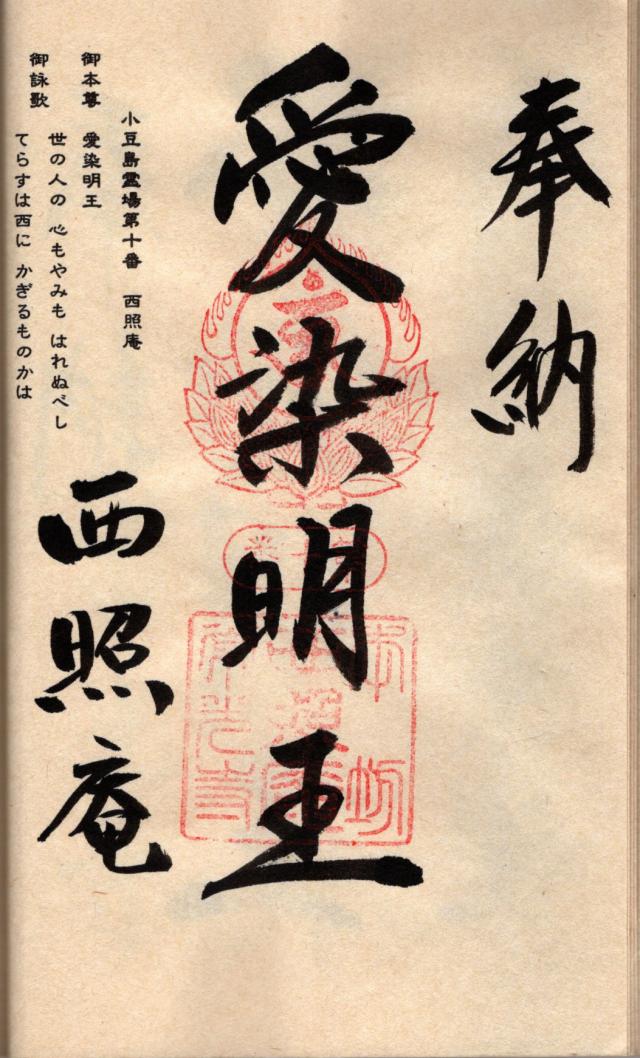 奉納
愛染明王
西照庵
小豆島霊場第十番　西照庵
御本尊　愛染明王
御詠歌　世の人の　心もやみも　はれぬべし
てらすは西に　かぎるものかは